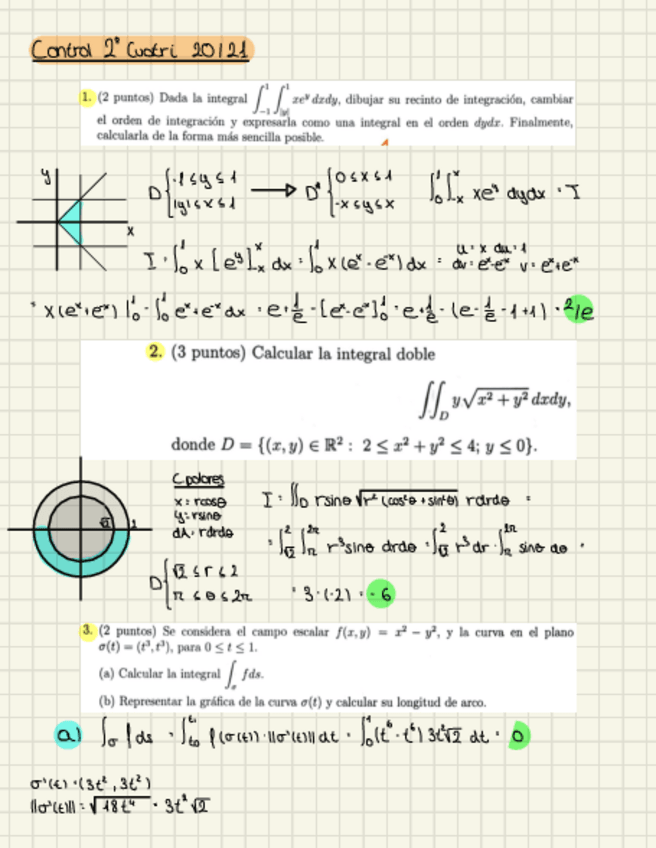 Control 2º Cuatri 20/21
1. (2 puntos) Dada la integral ∫_{-1}^{1} ∫_{|y|}^{1} xe^y dxdy, dibujar su recinto de integración, cambiar
el orden de integración y expresarla como una integral en el orden dydx. Finalmente,
calcularla de la forma más sencilla posible.
y
x
D { -1 ≤ y ≤ 1 → D* { 0 ≤ x ≤ 1 ∫_0^1 ∫_{-x}^x xe^y dydx = I
|y| ≤ x ≤ 1 -x ≤ y ≤ x
I = ∫_0^1 x [e^y]_{-x}^x dx = ∫_0^1 x(e^x - e^{-x}) dx = u = x du = 1
dv = e^x - e^{-x} v = e^x + e^{-x}
= x(e^x + e^{-x}) |_0^1 - ∫_0^1 e^x + e^{-x} dx = e + 1/e - [e^x - e^{-x}]_0^1 = e + 1/e - (e - 1/e - 1 + 1) = 2/e
2. (3 puntos) Calcular la integral doble
∬_D y√(x² + y²) dxdy,
donde D = {(x, y) ∈ ℝ² : 2 ≤ x² + y² ≤ 4; y ≤ 0}.
√2 2
C. polares
x = rcosθ
y = rsinθ
dA = rdrdθ
I = ∬_D rsinθ √(r² (cos²θ + sin²θ)) rdrdθ =
= ∫_{√2}^2 ∫_π^{2π} r³sinθ drdθ = ∫_{√2}^2 r³dr · ∫_π^{2π} sinθ dθ =
D { √2 ≤ r ≤ 2
π ≤ θ ≤ 2π
= 3 · (-2) = -6
3. (2 puntos) Se considera el campo escalar f(x, y) = x² − y², y la curva en el plano
σ(t) = (t³, t³), para 0 ≤ t ≤ 1.
(a) Calcular la integral ∫_σ fds.
(b) Representar la gráfica de la curva σ(t) y calcular su longitud de arco.
a) ∫_σ f ds = ∫_{t0}^{t1} f(σ(t)) · ||σ'(t)|| dt = ∫_0^1 (t⁶ - t⁶) 3t²√2 dt = 0
σ'(t) = (3t², 3t²)
||σ'(t)|| = √(18t⁴) = 3t²√2